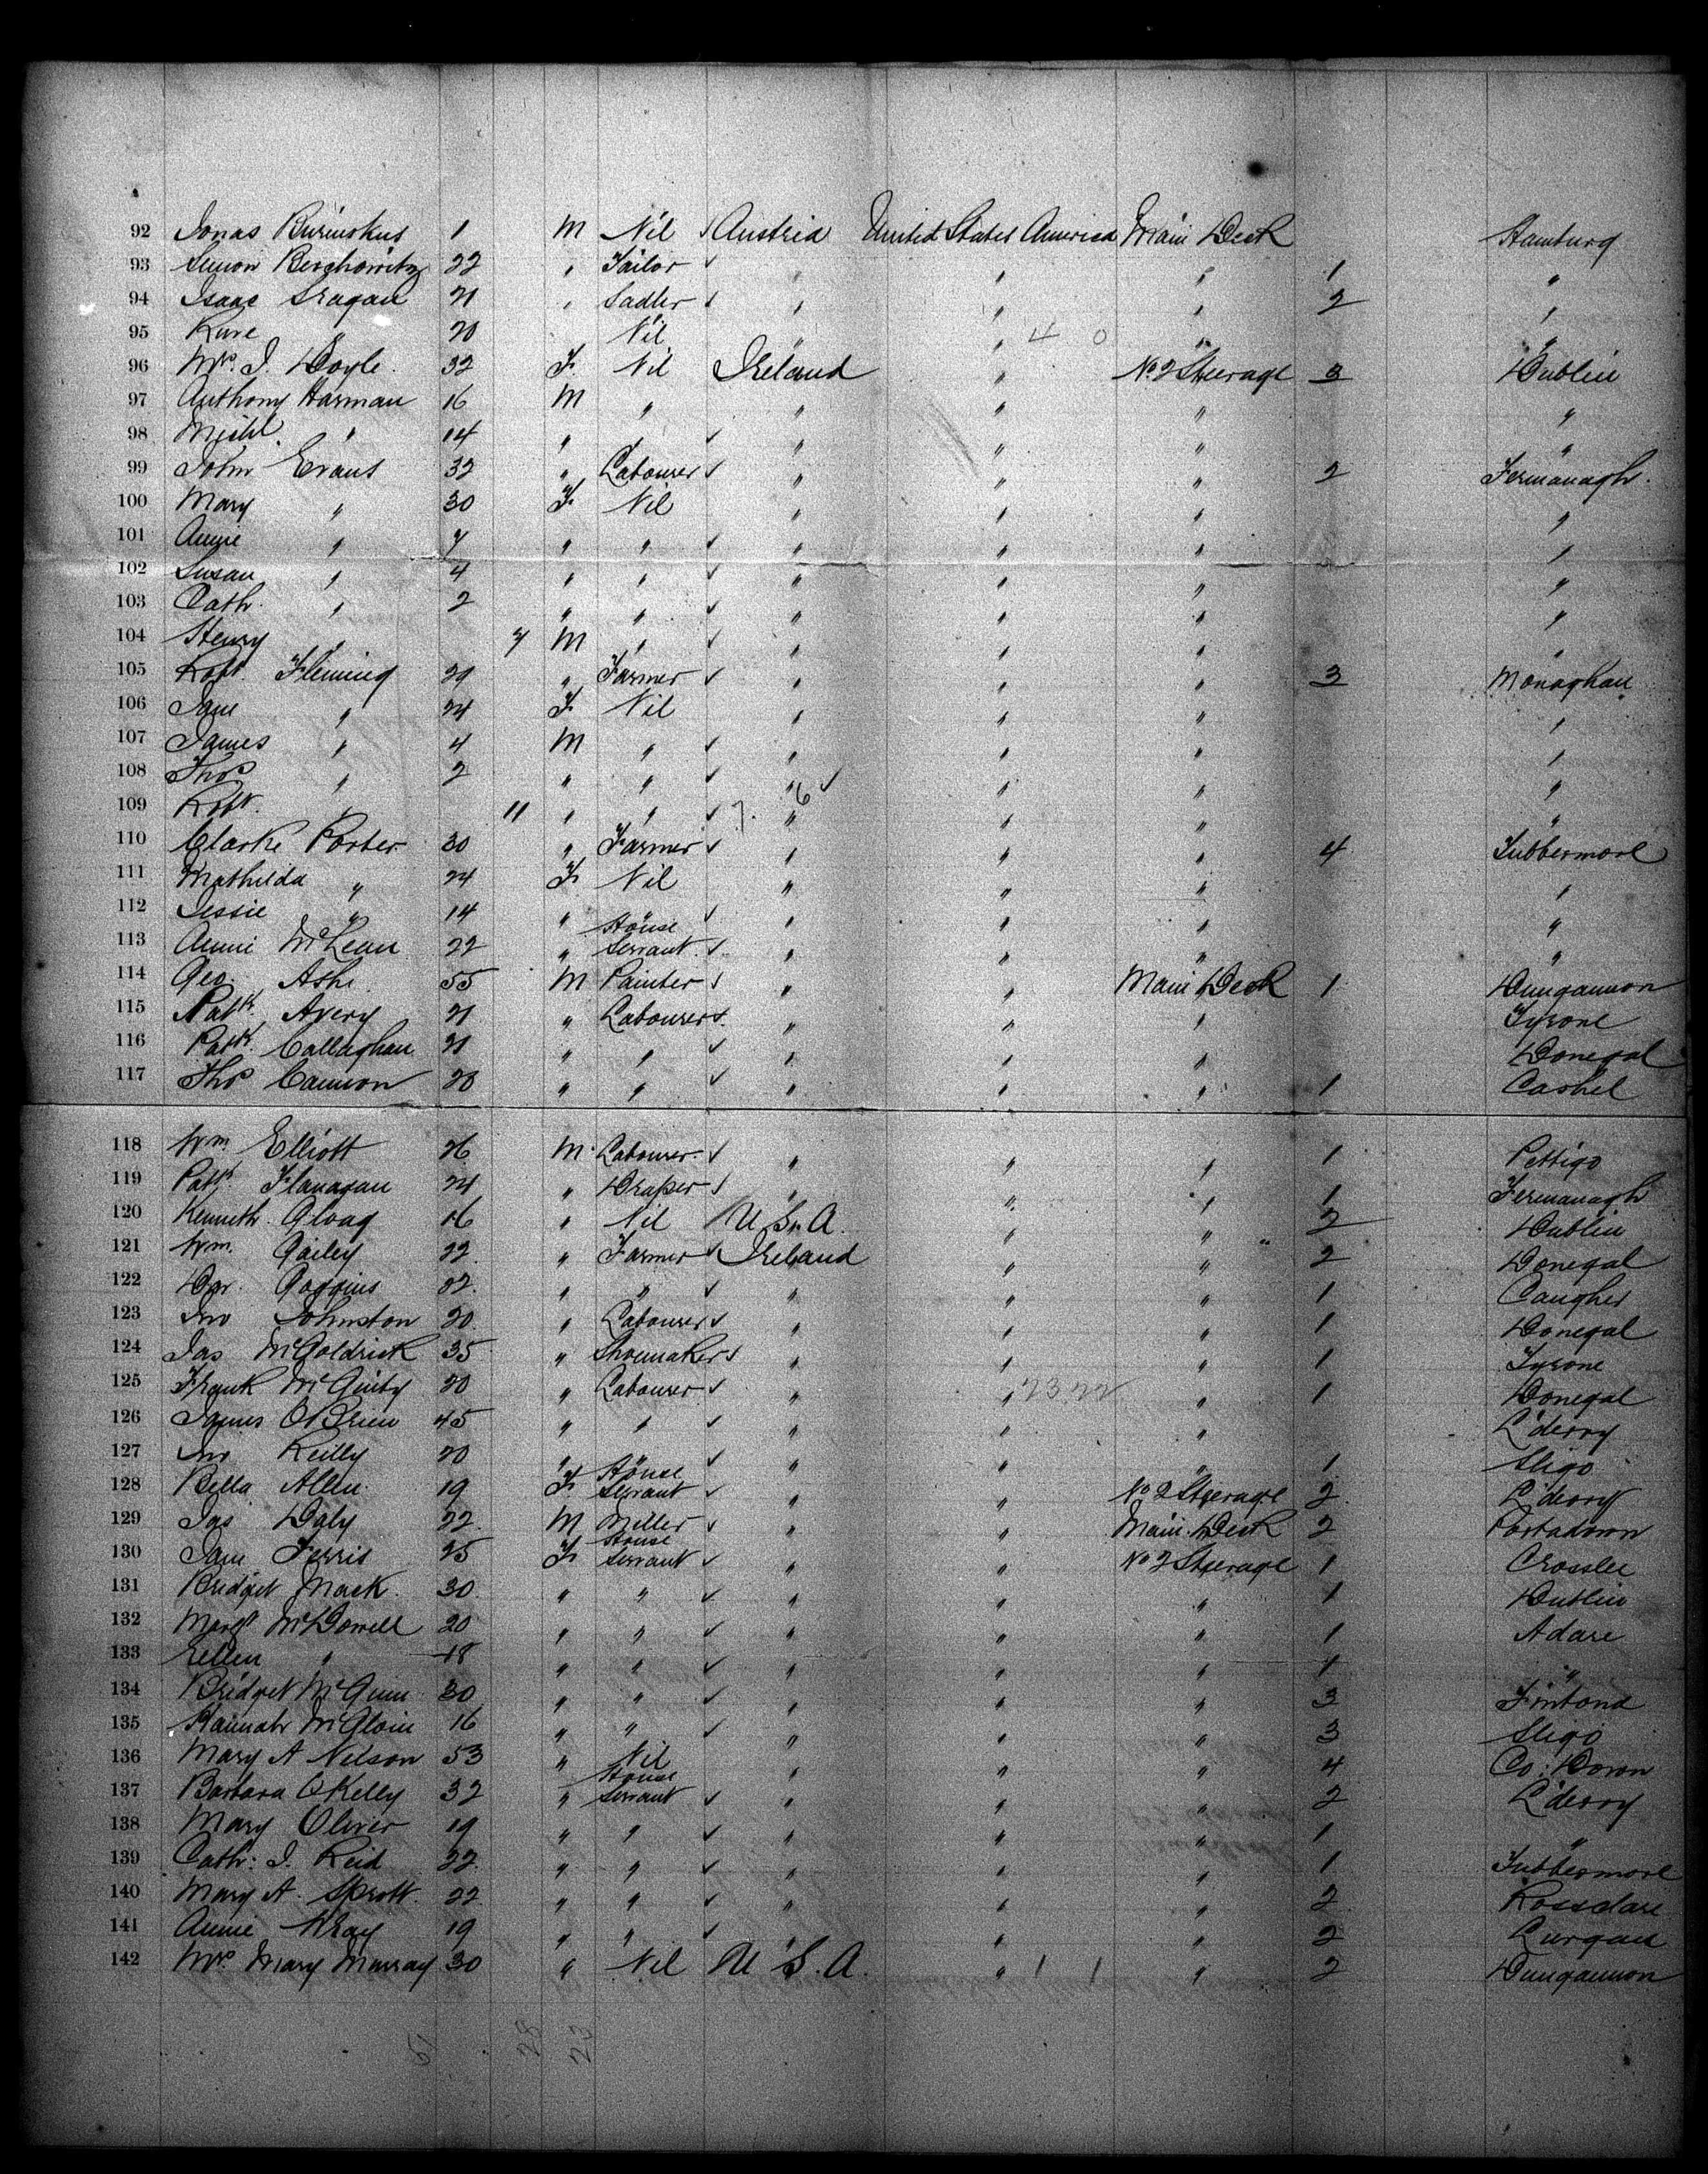 92 Jonas Burinskus 1 M Nil Austria United States America Main Deck Hamburg
93 Simon Berchowitz 22 " Tailor " " " 1 "
94 Isaac Sragan 21 " Sadler " " " 2 "
95 Kure " 20 Nil " " 4 0 " "
96 Mrs. J. Doyle 32 F. Nil Ireland " No 2 Steerage 3 Dublin
97 Anthony Harman 16 M " " " " "
98 Michl. " 14 " " " " " "
99 John Evans 32 " Labourer " " " 2 Fermanagh.
100 Mary " 30 F. Nil " " " "
101 Annie " 7 " " " " " "
102 Susan " 4 " " " " " "
103 Cath. " 2 " " " " " "
104 Henry " 7 M " " " " "
105 Robt. Fleming 29 " Farmer " " " 3 Monaghan
106 Jane " 24 F. Nil " " " "
107 James " 4 M " " " " "
108 Thos " 2 " " " 6 " " "
109 Robt. " 11 " " 7. " " " "
110 Clarke Porter 30 " Farmer " " " 4 Tubbermore
111 Mathilda " 24 F. Nil " " " "
112 Jessie " 14 " " " " " "
113 Annie McLean 22 " House Servant " " " "
114 Geo. Ashe. 55 M Painter " " Main Deck 1 Dungannon
115 Patk. Avery 21 " Labourer " " " Tyrone
116 Patk. Callaghan 21 " " " " " Donegal
117 Thos Cannon 28 " " " " " 1 Cashel
118 Wm Elliott 26 M. Labourer " " " 1 Pettigo
119 Patk. Flanagan 24 " Draper " " " 1 Fermanagh
120 Kenneth. Gloag 16 " Nil U.S.A. " " 2 Dublin
121 Wm. Gailey 22 " Farmer Ireland " " 2 Donegal
122 Goggins 22. " " " " " 1 Caugher
123 Jno Johnston 20. " Labourer " " " 1 Donegal
124 Jas McGoldrick 35 " Shoemaker " " " 1 Tyrone
125 Frank McGinty 20 " Labourer " " 23 22 " 1 Donegal
126 James O'Brien 45 " " " " " L'derry
127 Jno Reilly 20 " " " " " 1 Sligo
128 Bella Allen 19 F. House Servant " " No 2 Steerage 2 L'derry
129 Jas Daly 22. M Miller " " Main Deck 2 Portadown
130 Jane Ferris 25 F. House Servant " " No 2 Steerage 1 Crosslee
131 Bridget Mack. 30 " " " " " 1 Dublin
132 Margt McDowell 20 " " " " " 1 Adare
133 Ellen " 18 " " " " " 1 "
134 Bridget McGinn 30 " " " " " 3 Fintona
135 Hannah McGloin 16 " " " " " 3 Sligo
136 Mary A Nelson 53 " Nil " " " 4 Co: Down
137 Barbara O'Kelly 32 " House Servant " " " 2 L'derry
138 Mary Oliver 19 " " " " " 1 "
139 Cath: J. Reid 22. " " " " " 1 Tubbermore
140 Mary A. Sprott. 22 " " " " " 2 Rossclare
141 Annie Wray 19 " " " " " 2 Lurgan
142 Mrs Mary Murray 30 " Nil U.S.A. " 1 1 " 2 Dungannon
51 28 23